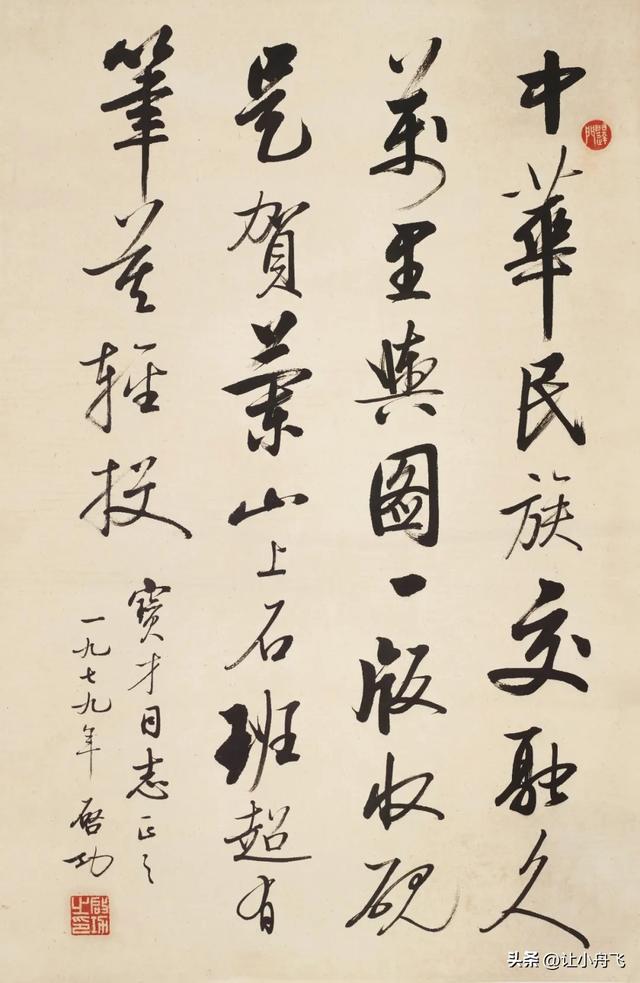 中華民族交融久
萬里輿圖一版收硯
是賀蘭山上石班超有
筆莫輕投
寶才同志正之
一九七九年 啓功
啓功之印
头条 @让小舟飞